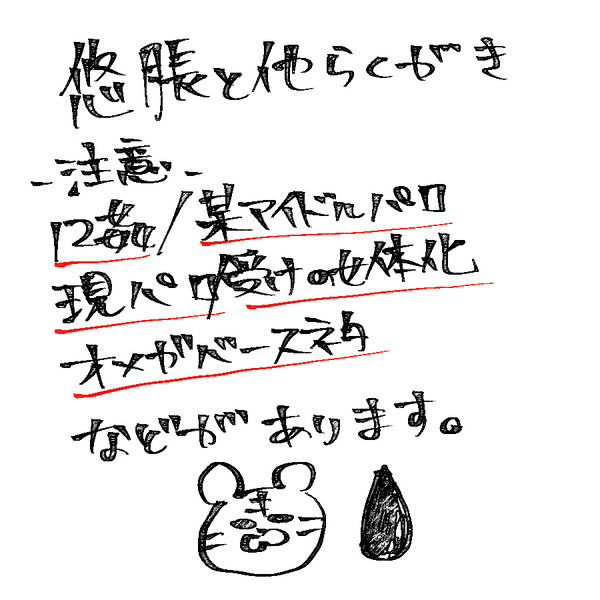 悠脹と他らくがき
-注意-
口2姦/某アイドルパロ
現パロ受けの女体化
オメガバースネタ
などがあります。